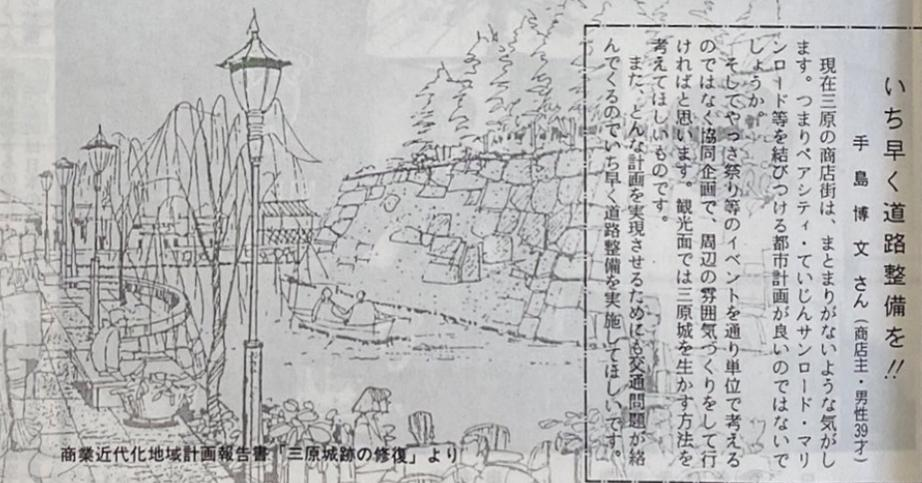 いち早く道路整備を!!
手島博文さん(商店主・男性39才)
現在三原の商店街は、まとまりがないような気がし
ます。つまりペアシティ・ていじんサンロード・マリ
ンロード等を結びつける都市計画が良いのではないで
しょうか。
そしてやっさ祭り等のイベントを通り単位で考える
のではなく協同企画で、周辺の雰囲気づくりをして行
ければと思います。観光面では三原城を生かす方法を
考えてほしいものです。
また、どんな計画を実現させるためにも交通問題が絡
んでくるのでいち早く道路整備を実施してほしいです。
商業近代化地域計画報告書「三原城跡の修復」より